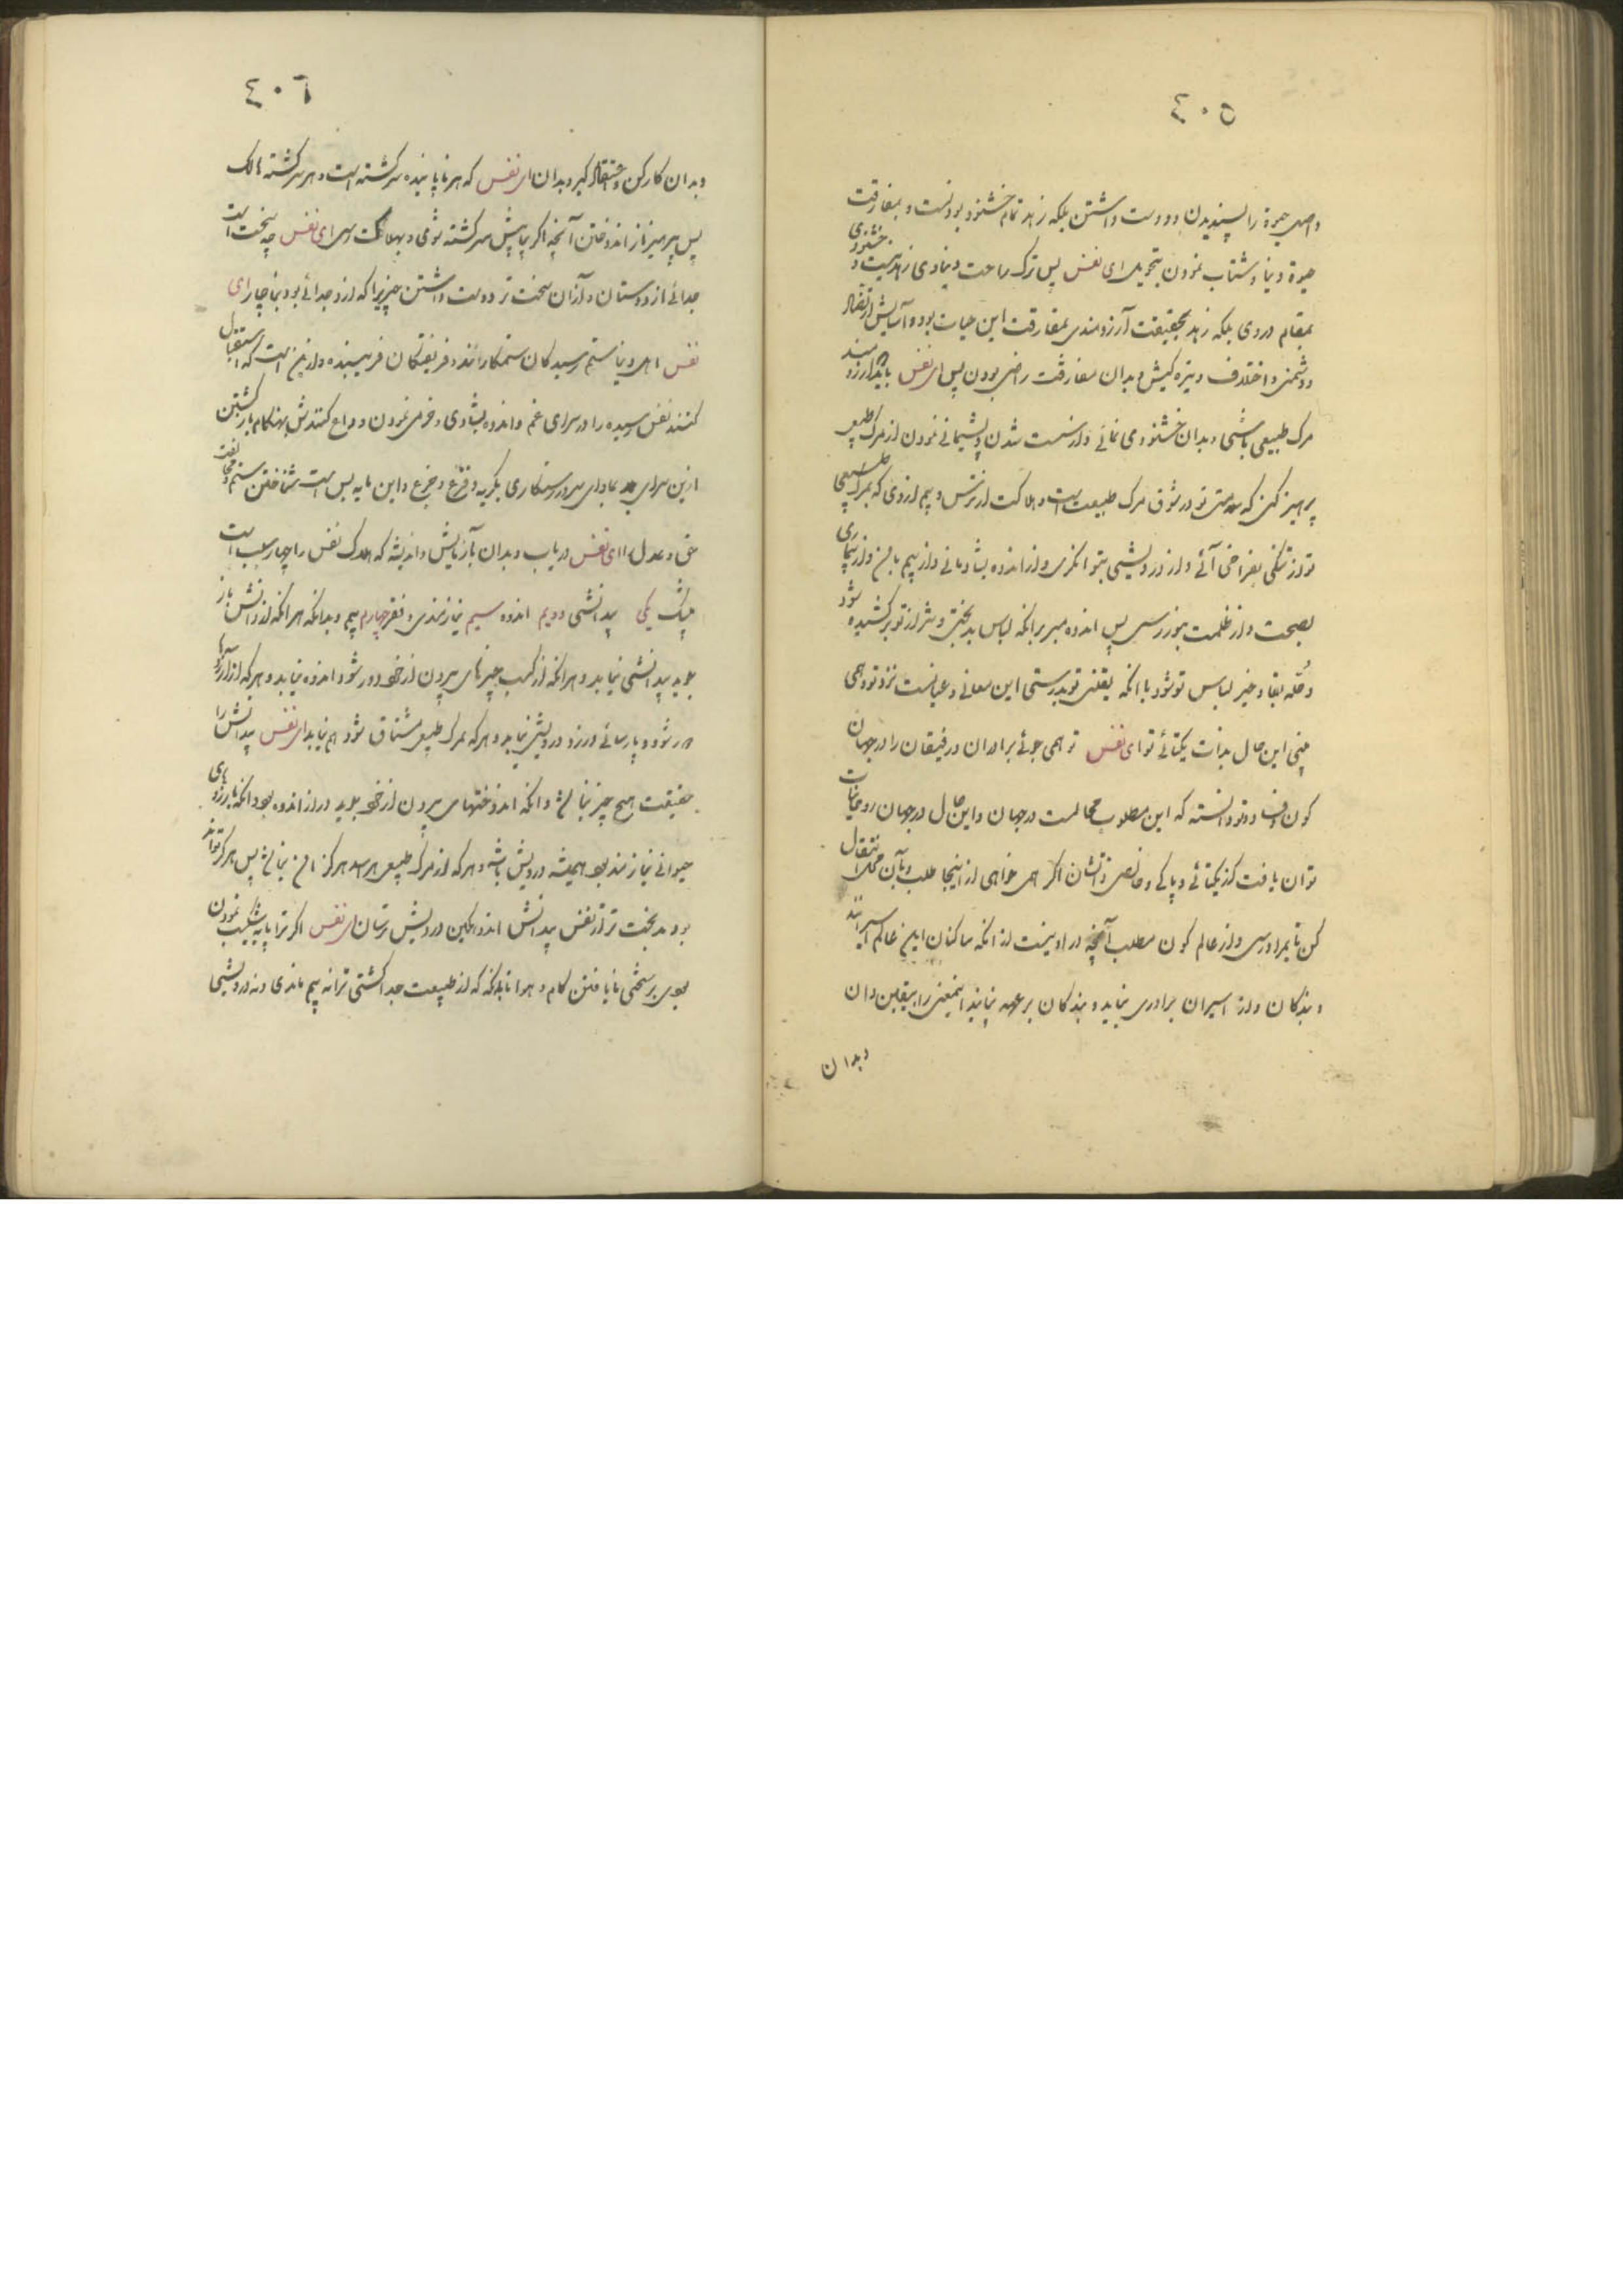 ٤٠٥
و اصل حیوة را پسندیدن و دوست داشتن بلکه زهد تمام خشنود بودنست و بمفارقت
حیوة دنیا و شتاب نمودن بتحویل ای نفس پس ترک راحت دنیاوی زهد نیست و خشنودی
بمقام در وی بلکه زهد بحقیقت آرزومندی بمفارقت این حیات بود و آسایش از تضاد
و دشمنی و اختلاف و تیره کیش و بدان مفارقت راضی بودن پس ای نفس باید که آرزومند
مرک طبیعی باشی و بدان خشنودی نمائی و از سست شدن و پشیمانی نمودن از مرک طبیعی
پرهیز کنی که سلامتی تو در شوق مرک طبیعت است و هلاکت از ترس و بیم از وی که بمرک طبیعی
تو از تنکی بفراخی آئی و از درویشی بتوانکری و از اندوه بشادمانی و از بیم بامن و از بیماری
بصحت و از ظلمت بنور رسی پس اندوه مبر برانکه لباس بدبختی و شر از تو برکشیده شود
و حُلّه بقا و خیر لباس تو شود با انکه یقینی تو بدرستی این معانی و عیانست نزد تو و همی
بینی این حال بذات یکتائی تو ای نفس تو همی جوئی برادران و رفیقان را در جهان
کون و فساد و تو دانسته که این مطلوب محالست در جهان و این حال در جهان روحانیات
توان یافت کز یکتائی و پاکی و خالص ذاتشان اکر همی خواهی از اینجا طلب و بآن محل انتقال
کن تا بمراد رسی و از عالم کون مطلب آنچه در او نیست از انکه ساکنان این عالم اسیرانند
و بندکان و از اسیران برادری نیاید و بندکان بر عهد نپایند اینمعنی را بیقین دان
و بدان
٤٠٦
و بدان کار کن و اعتقاد کیر و بدان ای نفس که هر ناپاینده سرکشته است و هر سرکشته هالک
پس بپرهیز از اندوختن آنچه اکر بیابیش سرکشته شوی و بهلاکت رسی ای نفس چه سخت است
جدائی از دوستان و از آن سخت تر دوست داشتن چیزیرا که ازو جدائی بود بناچار ای
نفس اهل دنیا ستم رسیدکان ستمکارانند و فریفتکان فریبنده و از این است که استقبال
کنند نفس رسیده را در سرای غم و اندوه بشادی و خرمی نمودن و وداع کنندش بهنکام بازکشتن
ازین سرای بد بمأوای سرور و رستکاری بکریه و فزع و جزع و این مایه بس است شناختن ستم و مخالفت
حق و عدل را ای نفس دریاب و بدان بآزمایش و اندیشه که هلاک نفس را چهار سبب است
بیشک یکی بیدانشی دویم اندوه سیم نیازمندی و فقر چهارم بیم و بدانکه هر انکه از دانش باز
جوید بیدانشی نیابد و هر انکه از کسب چیزهای بیرون از خود دور شود اندوه نیابد و هر که از آرزوها
دور شود و پارسائی ورزد درویشی نیابد و هر که بمرک طبیعی مشتاق شود بیم نیابد ای نفس بیدانش را
حقیقت هیچ چیز نباشد و انکه اندوختهای بیرون از خود جوید در از اندوه بود و انکه بآرزوهای
حیوانی نیازمند بود همیشه درویش باشد و هر که از مرک طبیعی هراسد هرکز ایمن نباشد پس هرکز تواند
بود بدبخت تر از نفس بیدانش اندوهکین درویش ترسان ای نفس اکر ترا پایه شکیب نمودن
بود بر سختی نایافتن کام و هوا تا بدانکه که از طبیعت جدا کشتی ترا نه بیم ماندی و نه درویشی